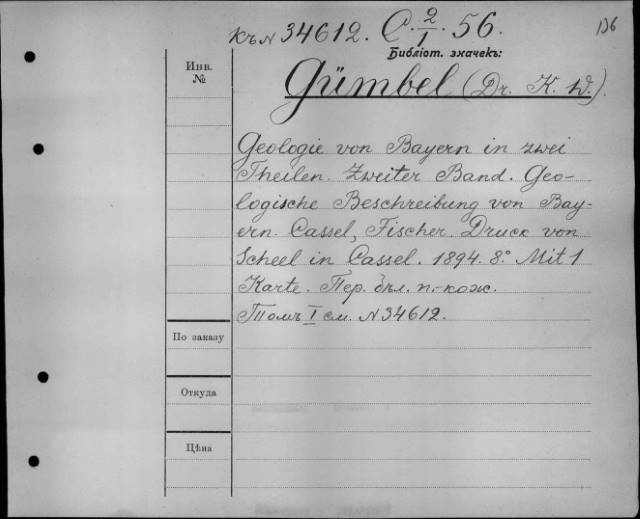 Къ N 34612. C. 2/I. 56.
136
Библіот. значекъ:
Инв.
№
Gümbel (Dr. K. W.).
Geologie von Bayern in zwei
Theilen. Zweiter Band. Geo-
logische Beschreibung von Bay-
ern. Cassel, Fischer. Druck von
Scheel in Cassel. 1894. 8.° Mit 1
Karte. Пер. бѣл. п.-кож.
Томъ I см. N 34612.
По заказу
Откуда
Цѣна